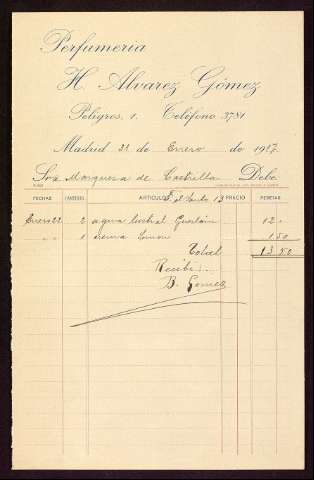 Perfumeria
H. Alvarez Gómez
Peligros, 1. Teléfono 3781
Madrid 22 de Enero de 1917
Sra Marquesa de Castrillo Debe
FECHAS ARTICULOS PRECIO PESETAS
Enero 22 2 agua lustral Guerlain 12
" " 1 crema Simon 1 50
Total 13 50
Recibi
B. Gomez